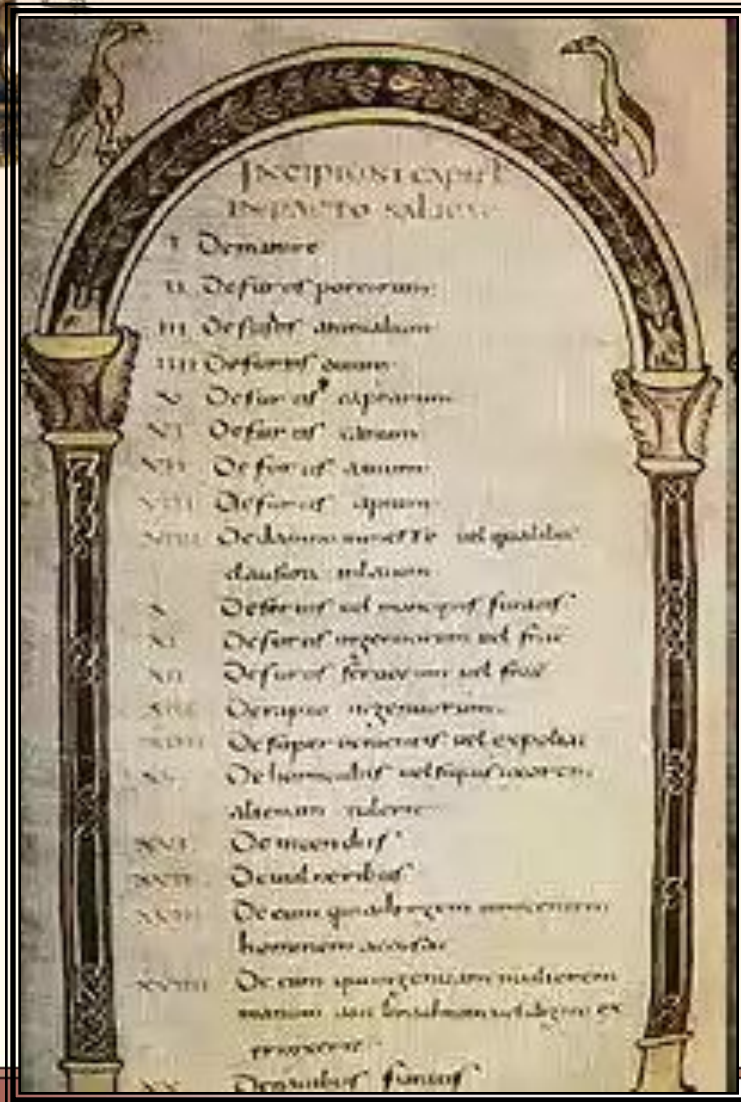 INCIPIUNT CAPIT
IN PACTO SALICAE
I De mannire
II De furtis porcorum
III De furtis animalium
IIII De furtis ouium
V De furtis caprarum
VI De furtis canum
VII De furtis auium
VIII De furtis apium
VIIII De damno in messe uel qualibet
clausura
X De seruis uel mancipiis furatis
XI De furtis ingenuorum uel frac
XII De furtis seruorum uel frac
XIII De rapto ingenuorum
XIIII De superuenientis uel expoliat
XV De homicidiis uel si quis uxorem
alienam tulerit
XVI De incendiis
XVII De uulneribus
XVIII De eum qui ad regem innocentem
hominem accusat
XVIIII De eum qui ingenuam mulierem
manum aut brachium uel digitum
XX De nauibus furatis